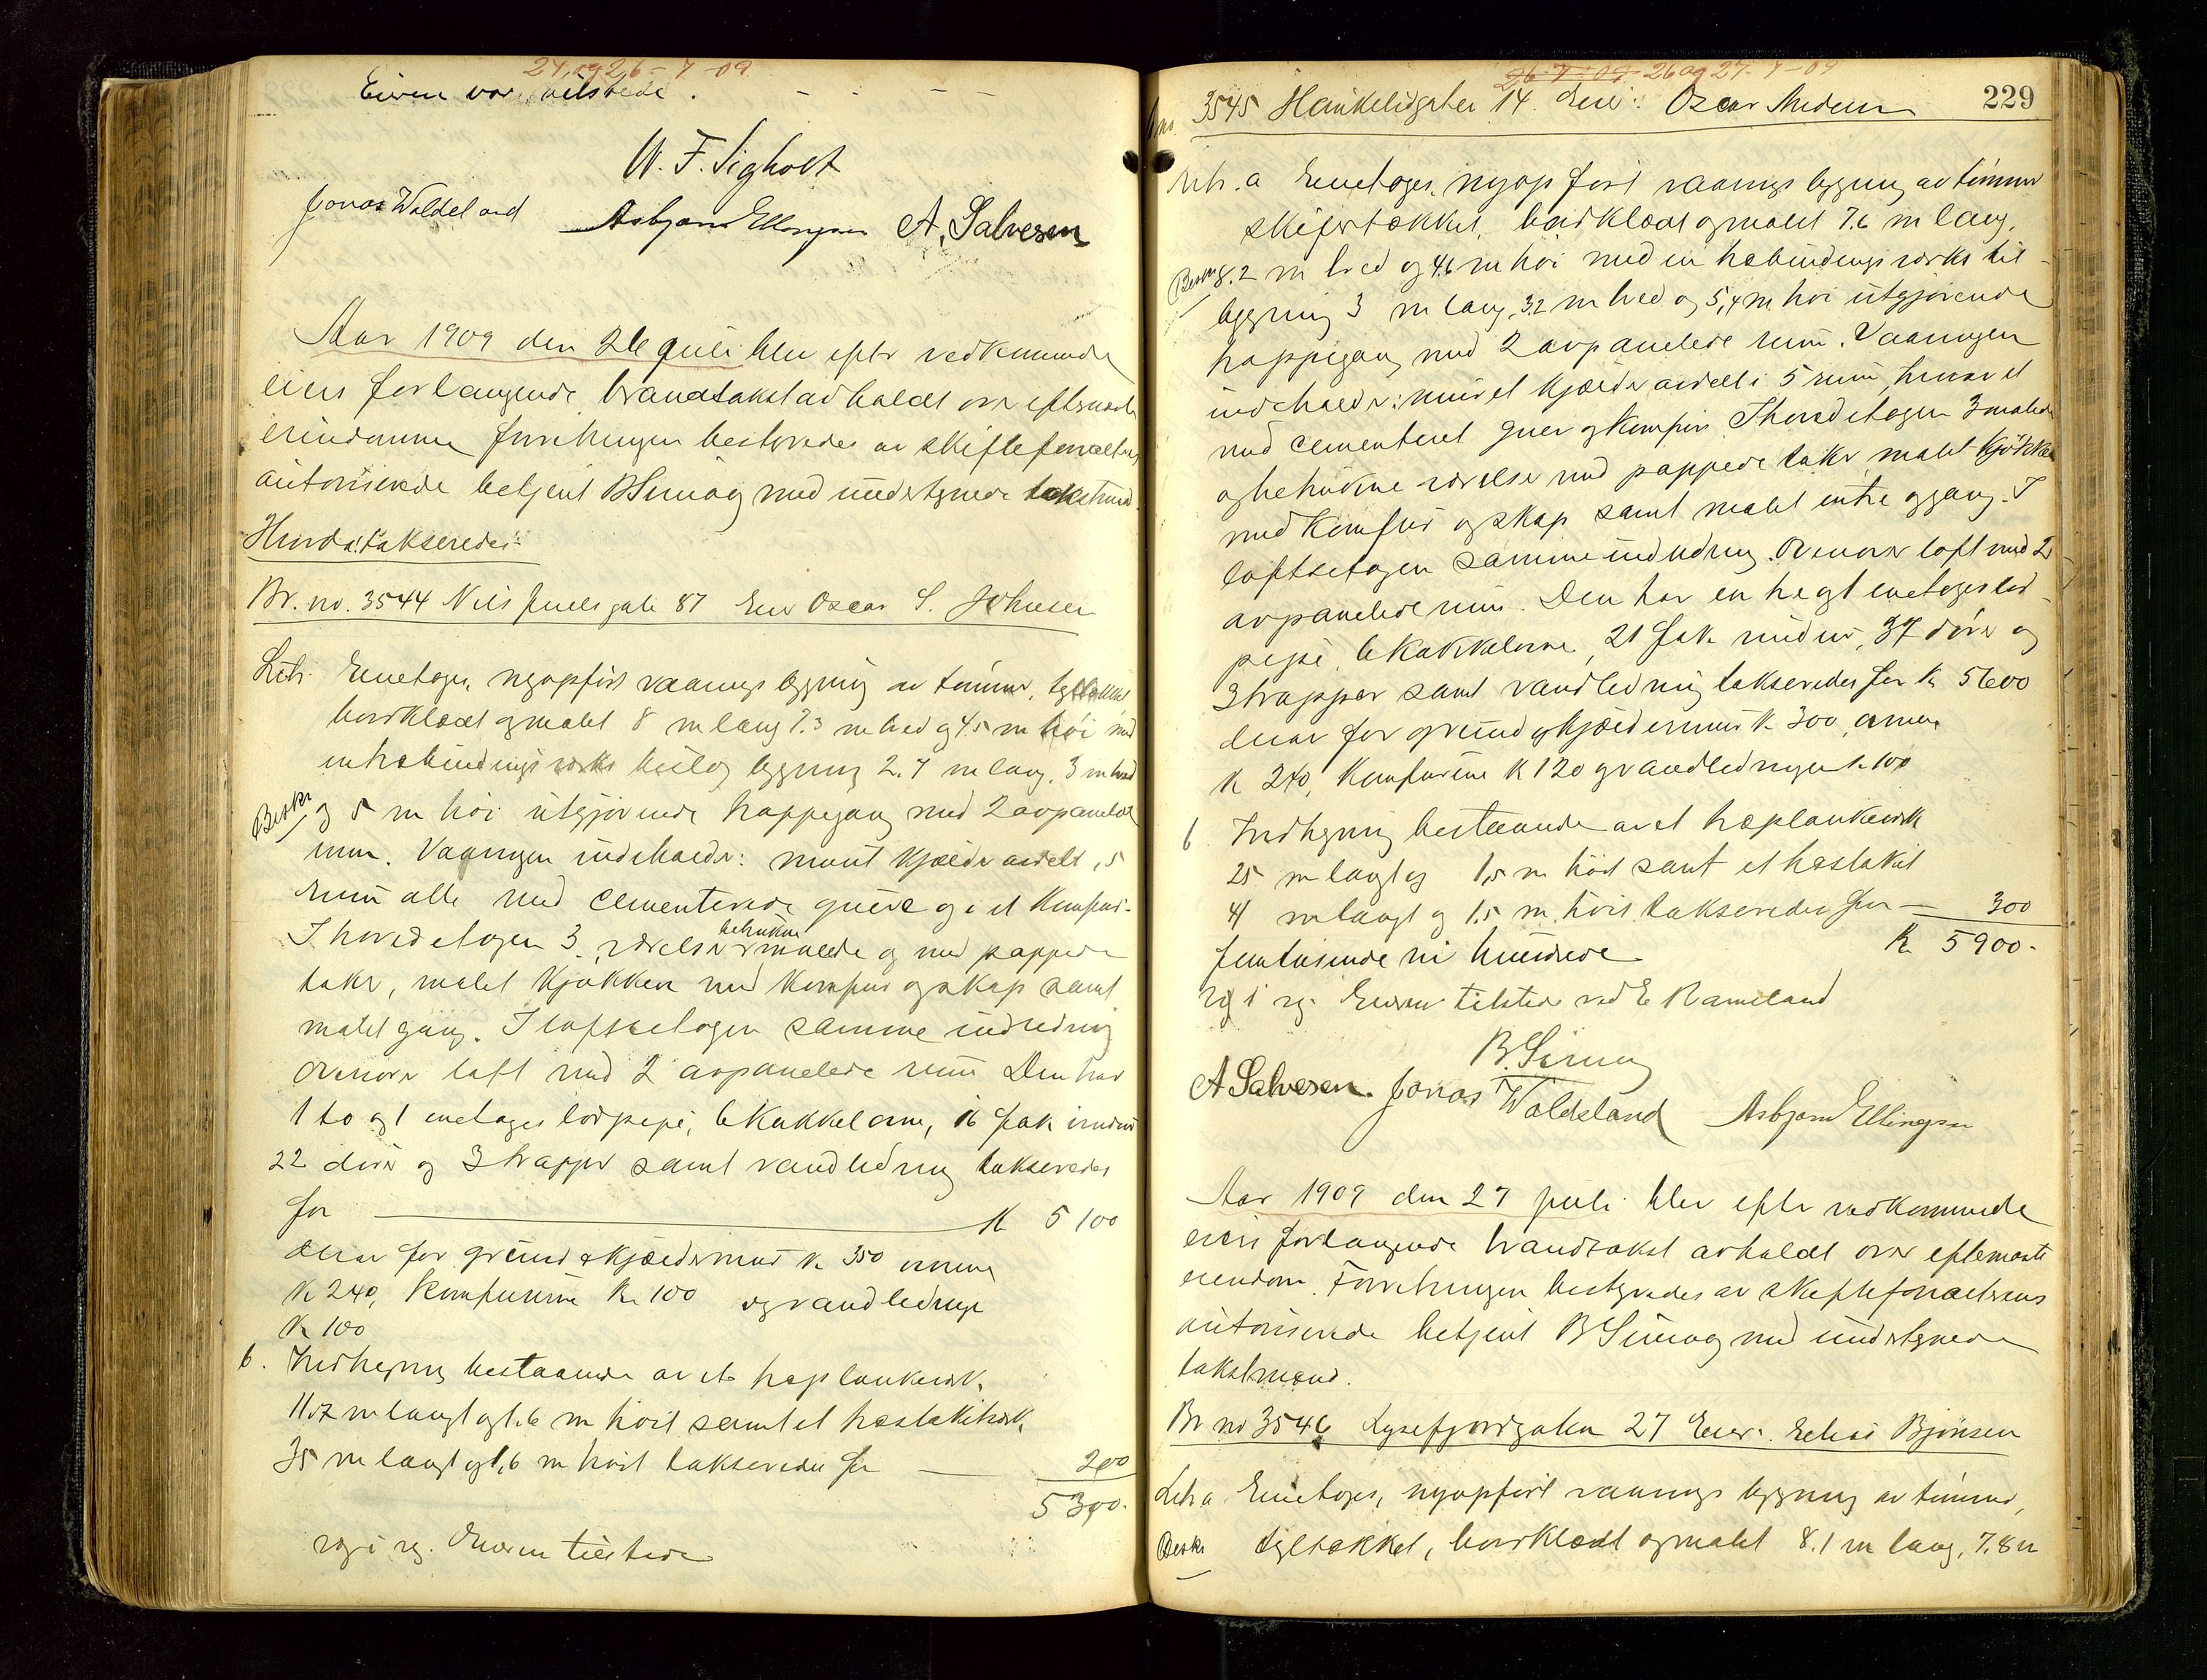 24 og 26 - 7 - 09
Eieren var tilstede.
W. F. Sigholt
Jonas Waldeland Asbjørn Ellingsen A. Salvesen
Aar 1909 den 26 juli blev efter vedkommende
eiers forlangende brandtakst avholdt over eftersnævnte
eiendomme forretningen bestyredes av skifteforvalterens
autoriserede betjent B Simog med undertegnede takstmænd.
Hvorda: takseredes:
Br. no. 3544 Nils Juels gate 87 Eier Oscar S. Johnsen
Litr. Enetages, nyopført vaaningsbygning av tømmer, tegltækket
bordklædt og malet 8 m lang 7.3 m bred og 4.5 m høi med
en halvbindingsverks tilbygning 2.7 m lang, 3 m bred
Beskr og 5 m høi utgjørende trappegang med 2 avpanelede
rum. Vaaningen indeholder: muret kjælder avdelt i 5
rum alle med cementerede gulve og i et komfur.
I hovedetagen 3 værelser betrukne malede og med pappede
takr, malet kjøkken med komfur og skap samt
malet gang. I loftsetagen samme indredning
Ovenover loft med 2 avpanelede rum Den har
1 to og 1 enetages lodpipe, 6 kakkelovne, 16 fak vinduer
22 dører og 3 trapper samt vandledning takseredes
for K 5100
derav for grund & kjældermur K 350 ovnene
K 240, komfurerne K 100 og vandledningen
K 100
b. Indhegning bestaaende av et træplankeverk
11.7 m langt og 1.6 m høit samt et træstakitverk
35 m langt og 1,6 m høit takseredes for 200
5300.
rg i rg. Eieren tilstede
26 7 - 09 26 og 27 - 7 - 09
229
Br no. 3545 Haukeligaten 14. Eier: Oscar Andersen
Litr. a Enetages, nyopført vaaningsbygning av tømmer
skifertækket, bordklædt og malet 7.6 m lang,
Beskr 8.2 m bred og 4.6 m høi med en halvbindingsverks til-
bygning 3 m lang, 3.2 m bred og 5,4 m høi utgjørende
trappegang med 2 avpanelede rum. Vaaningen
indeholder: muret kjælder avdelt i 5 rum hvorav et
med cementeret gulv og komfur. I hovedetagen 3 malede
og betrukne værelser med pappede takr, malet kjøkken
med komfur og skap samt malet entre og gang. I
loftsetagen samme indredning. Ovenover loft med 2
avpanelede rum. Den har en hel og 1 enetages lod-
pipe, 6 kakkelovne, 21 fak vinduer, 37 dører og
3 trapper samt vandledning takseredes for K 5600
derav for grund og kjældermur K 300, ovnene
K 240, komfurerne K 120 og vandledningen K 100
b Indhegning bestaaende av et træplankeverk
25 m langt og 1,5 m høit samt et træstakit
41 m langt og 1.5 m høit takseredes for 300
K 5900.
femtusinde ni hundrede
rg i rg. Eieren tilstede ved E Rameland
B. Simog
A Salvesen. Jonas Waldeland Asbjørn Ellingsen
Aar 1909 den 27 juli blev efter vedkommende
eiers forlangende brandtakst avholdt over eftersnævnte
eiendom. Forretningen bestyredes av skifteforvalterens
autoriserede betjent B Simog med undertegnede
takstmænd.
Br no 3546 Lysefjordgaten 27 Eier: Elias Bjønsen
Litr a. Enetages, nyopført vaaningsbygning av tømmer,
Beskr tegltækket, bordklædt og malet 8.1 m lang, 7.8 m